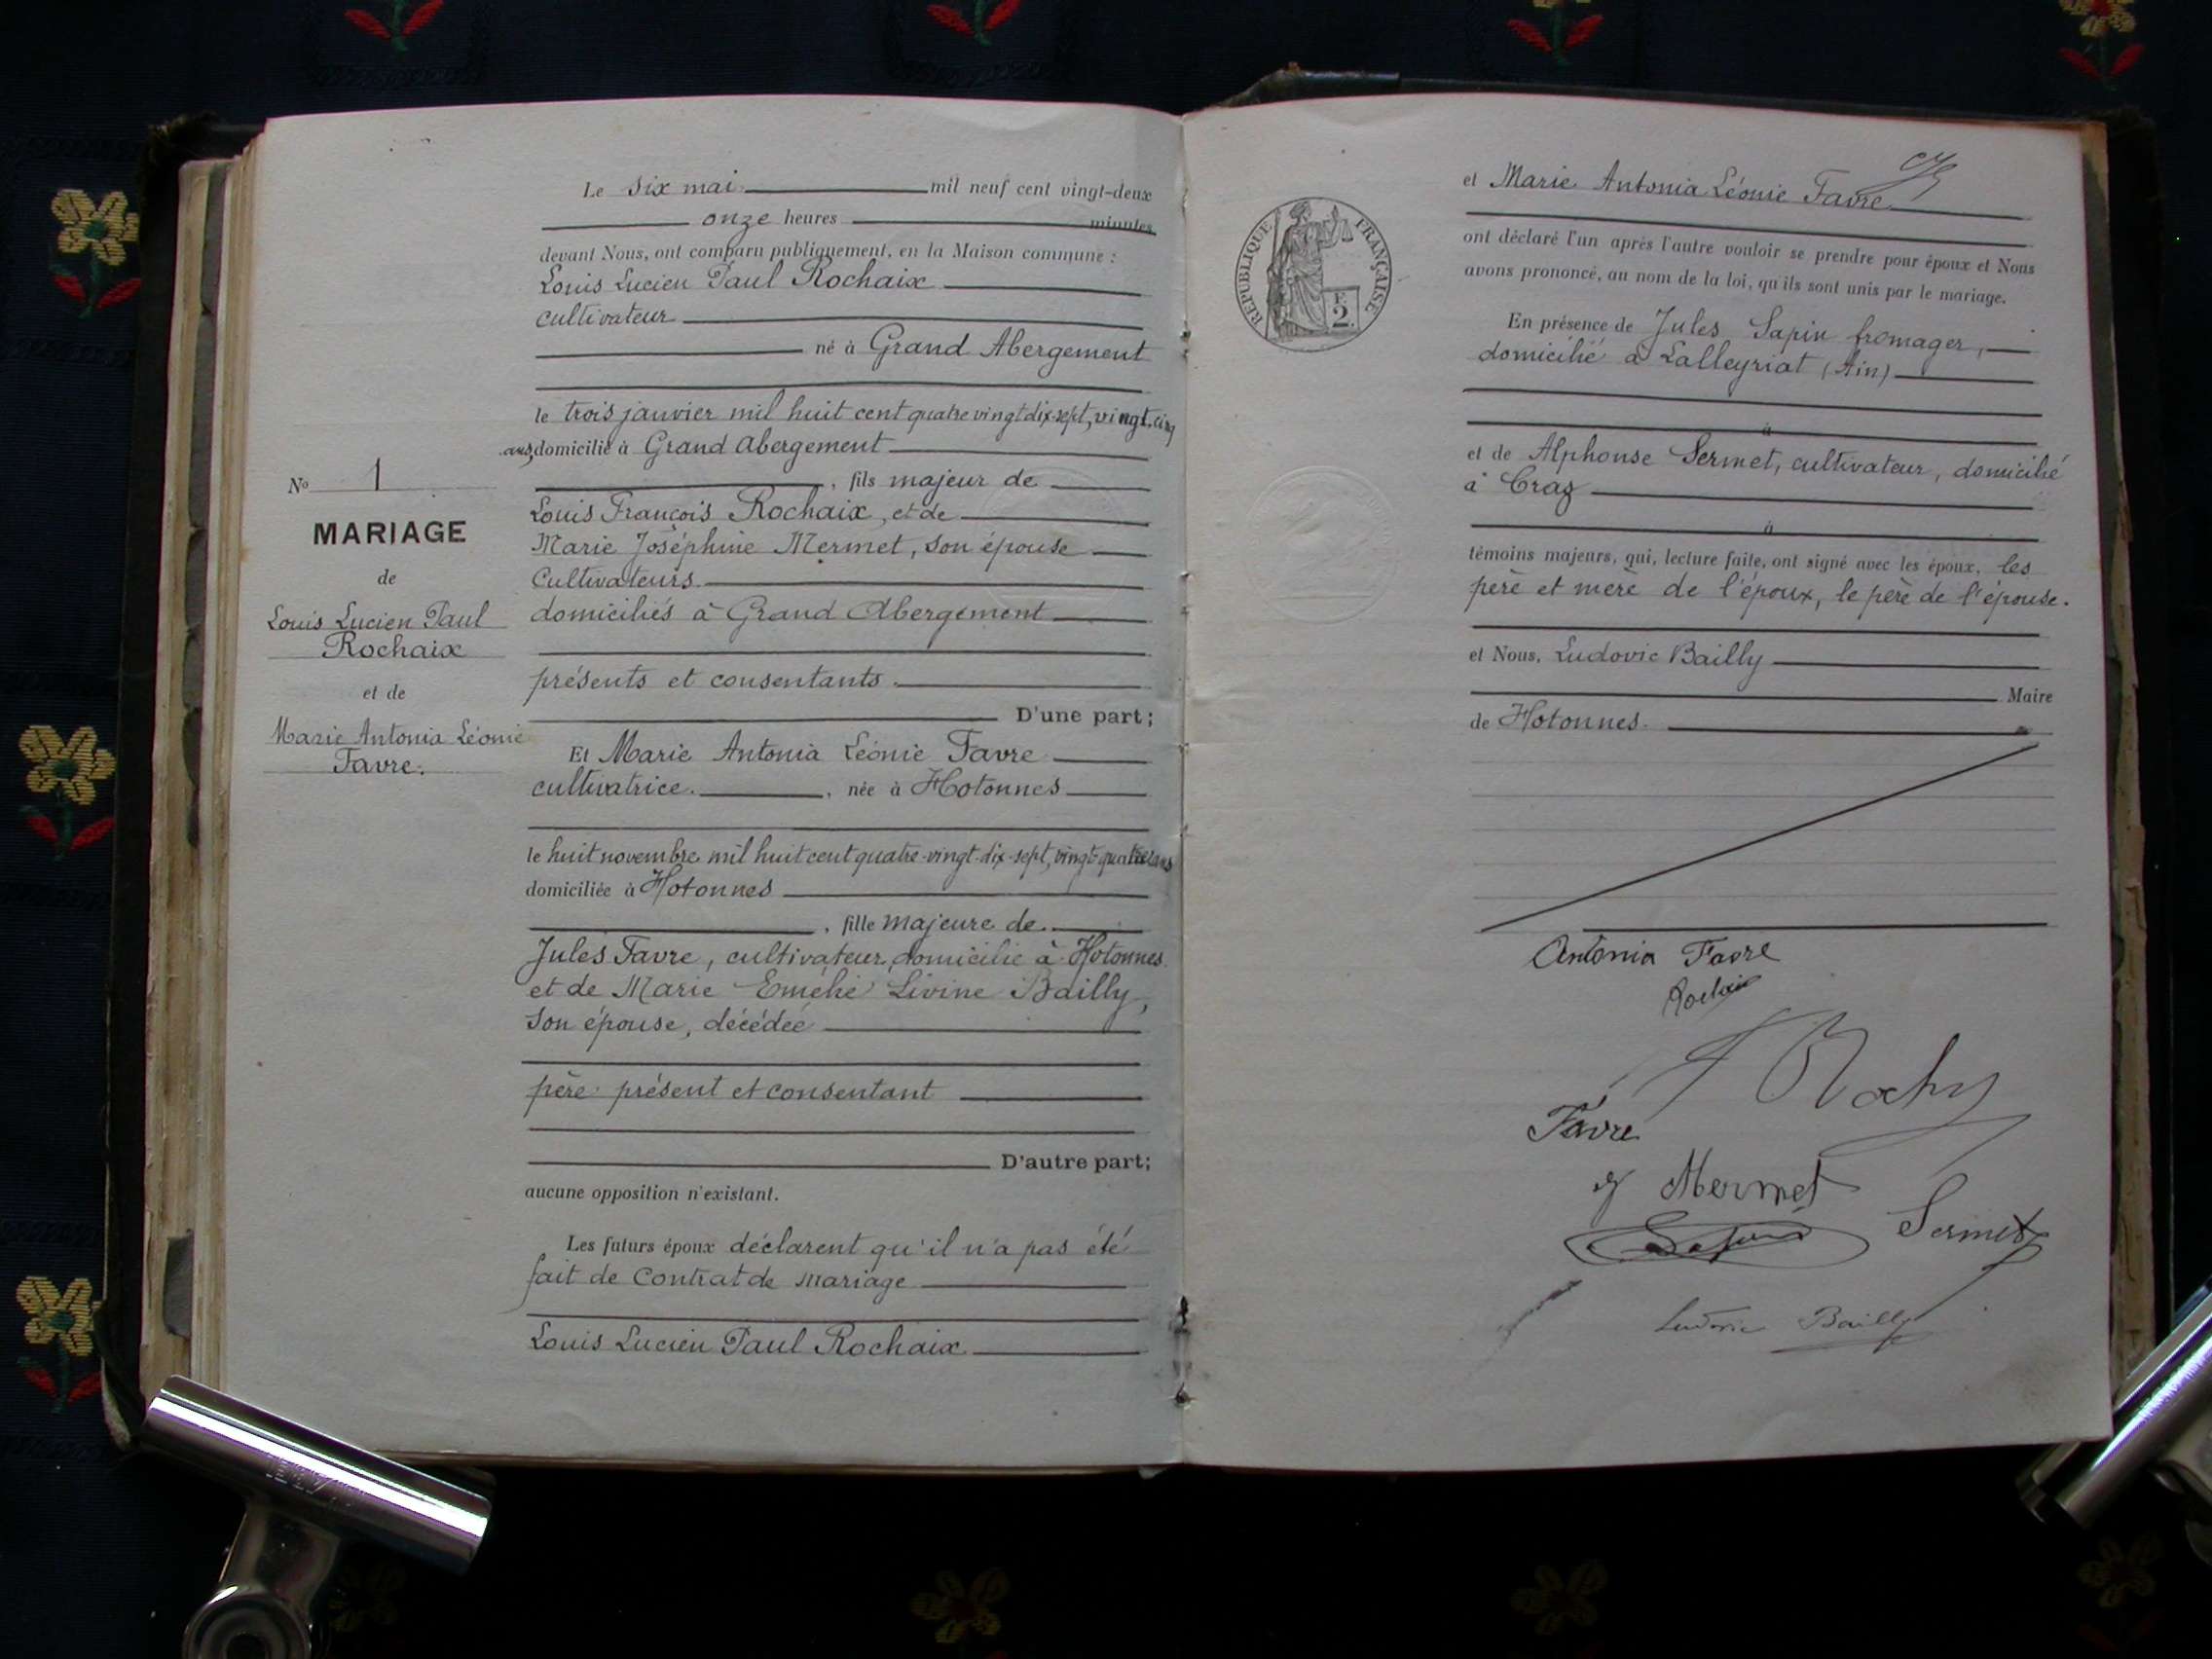 Le six mai mil neuf cent vingt-deux
onze heures minutes
devant Nous, ont comparu publiquement, en la Maison commune :
Louis Lucien Paul Rochaix
cultivateur
né à Grand Abergement
le trois janvier mil huit cent quatre vingt dix-sept, vingt-cinq
ans, domicilié à Grand Abergement
, fils majeur de
Louis François Rochaix, et de
Marie Joséphine Mermet, son épouse
Cultivateurs
domiciliés à Grand Abergement
présents et consentants.
D'une part;
Et Marie Antonia Léonie Favre
cultivatrice. , née à Hotonnes
le huit novembre mil huit cent quatre-vingt-dix-sept, vingt-quatre ans
domiciliée à Hotonnes
, fille majeure de
Jules Favre, cultivateur, domicilié à Hotonnes
et de Marie Livine Bailly,
son épouse, décédée
père présent et consentant
D'autre part;
aucune opposition n'existant.
Les futurs époux déclarent qu'il n'a pas été
fait de contrat de mariage
Louis Lucien Paul Rochaix
No 1
MARIAGE
de
Louis Lucien Paul
Rochaix
et de
Marie Antonia Léonie
Favre.
et Marie Antonia Léonie Favre
ont déclaré l'un après l'autre vouloir se prendre pour époux et Nous
avons prononcé, au nom de la loi, qu'ils sont unis par le mariage.
En présence de Jules Sapin fromager,
domicilié à Lalleyriat (Ain)
à
et de Alphonse Sermet, cultivateur, domicilié
à Craz
à
témoins majeurs, qui, lecture faite, ont signé avec les époux, les
père et mère de l'époux, le père de l'épouse.
et Nous, Ludovic Bailly
Maire
de Hotonnes.
RÉPUBLIQUE FRANÇAISE
F.
2
Antonia Favre
Rochaix
Favre
Mermet
Sermet
Ludovic Bailly